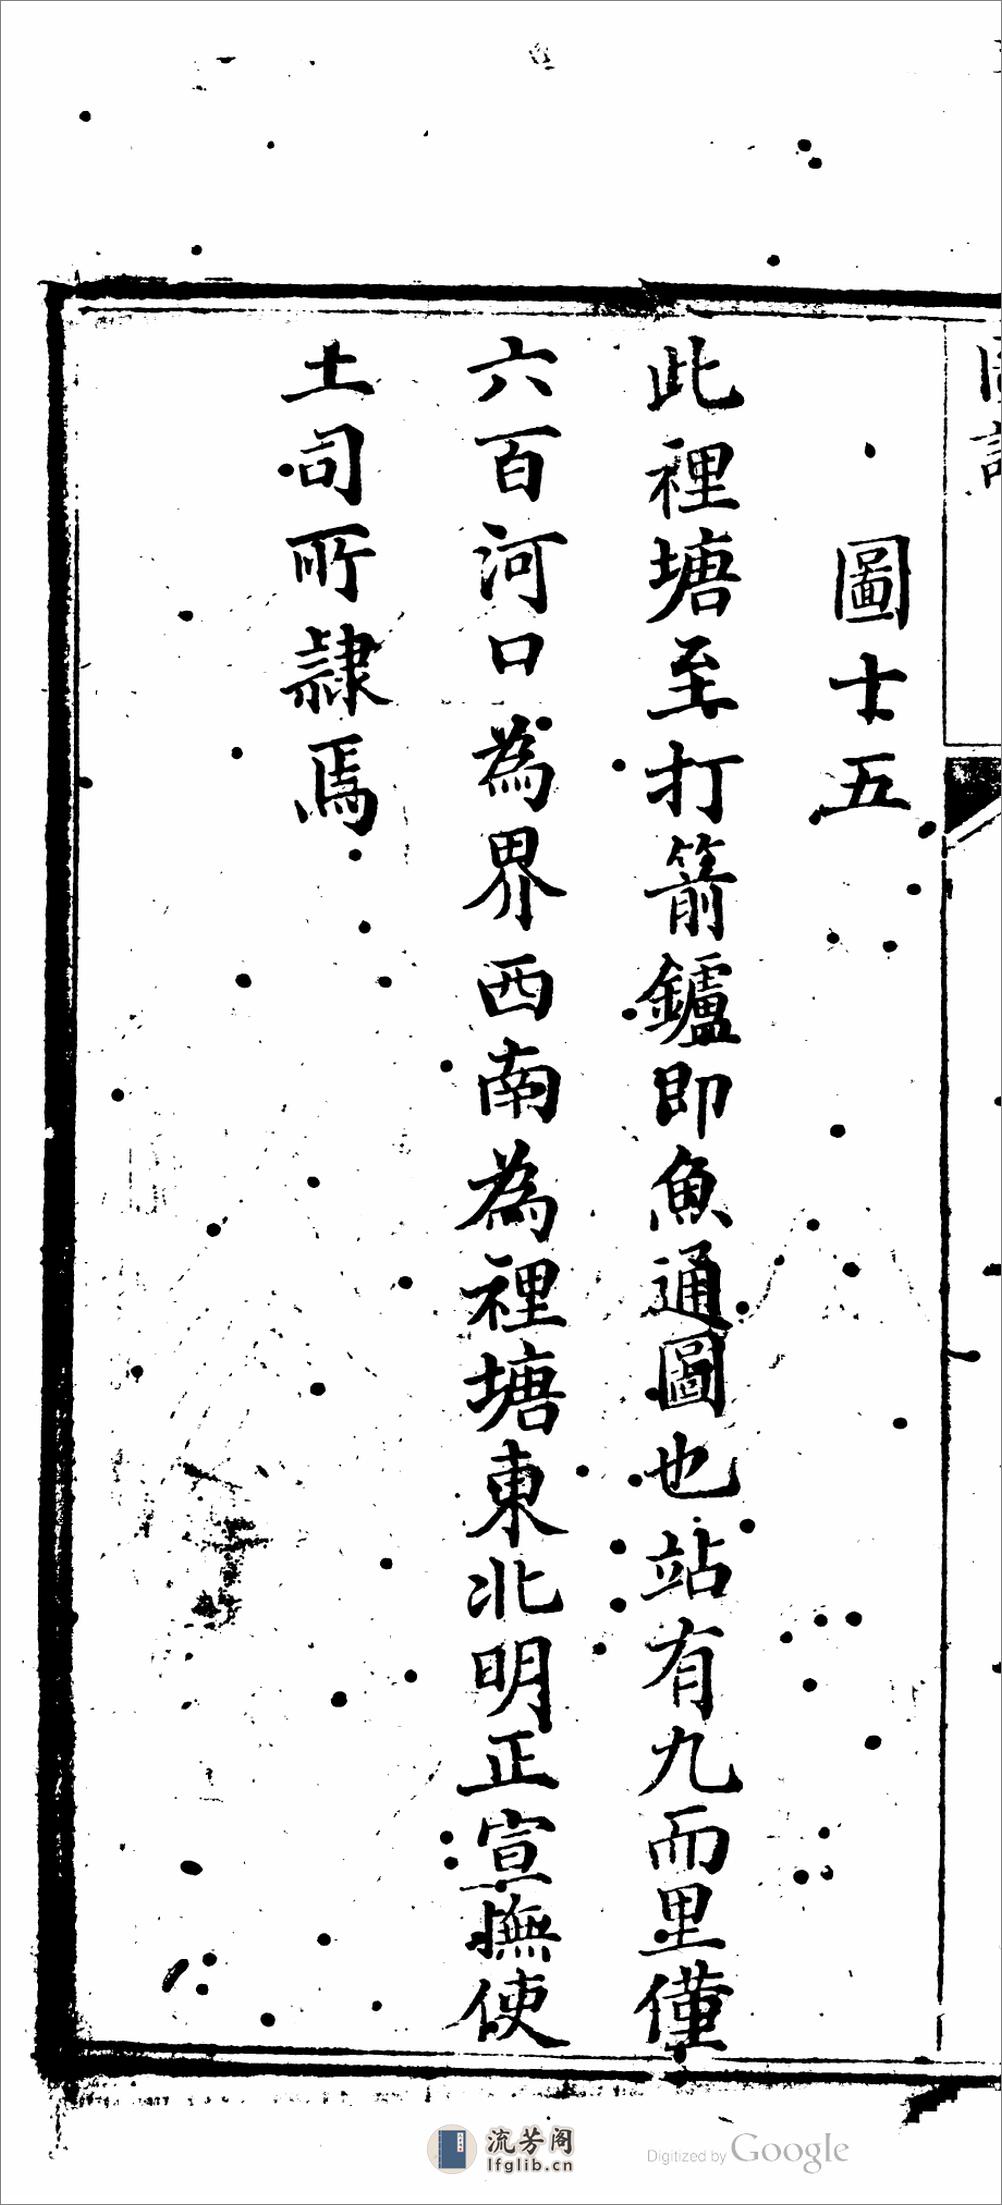 圖十五
此裡塘至打箭鑪即魚通圖也站有九而里僅
六百河口為界西南為裡塘東北明正宣撫使
土司所隸焉
流芳阁
lfglib.cn
Digitized by Google